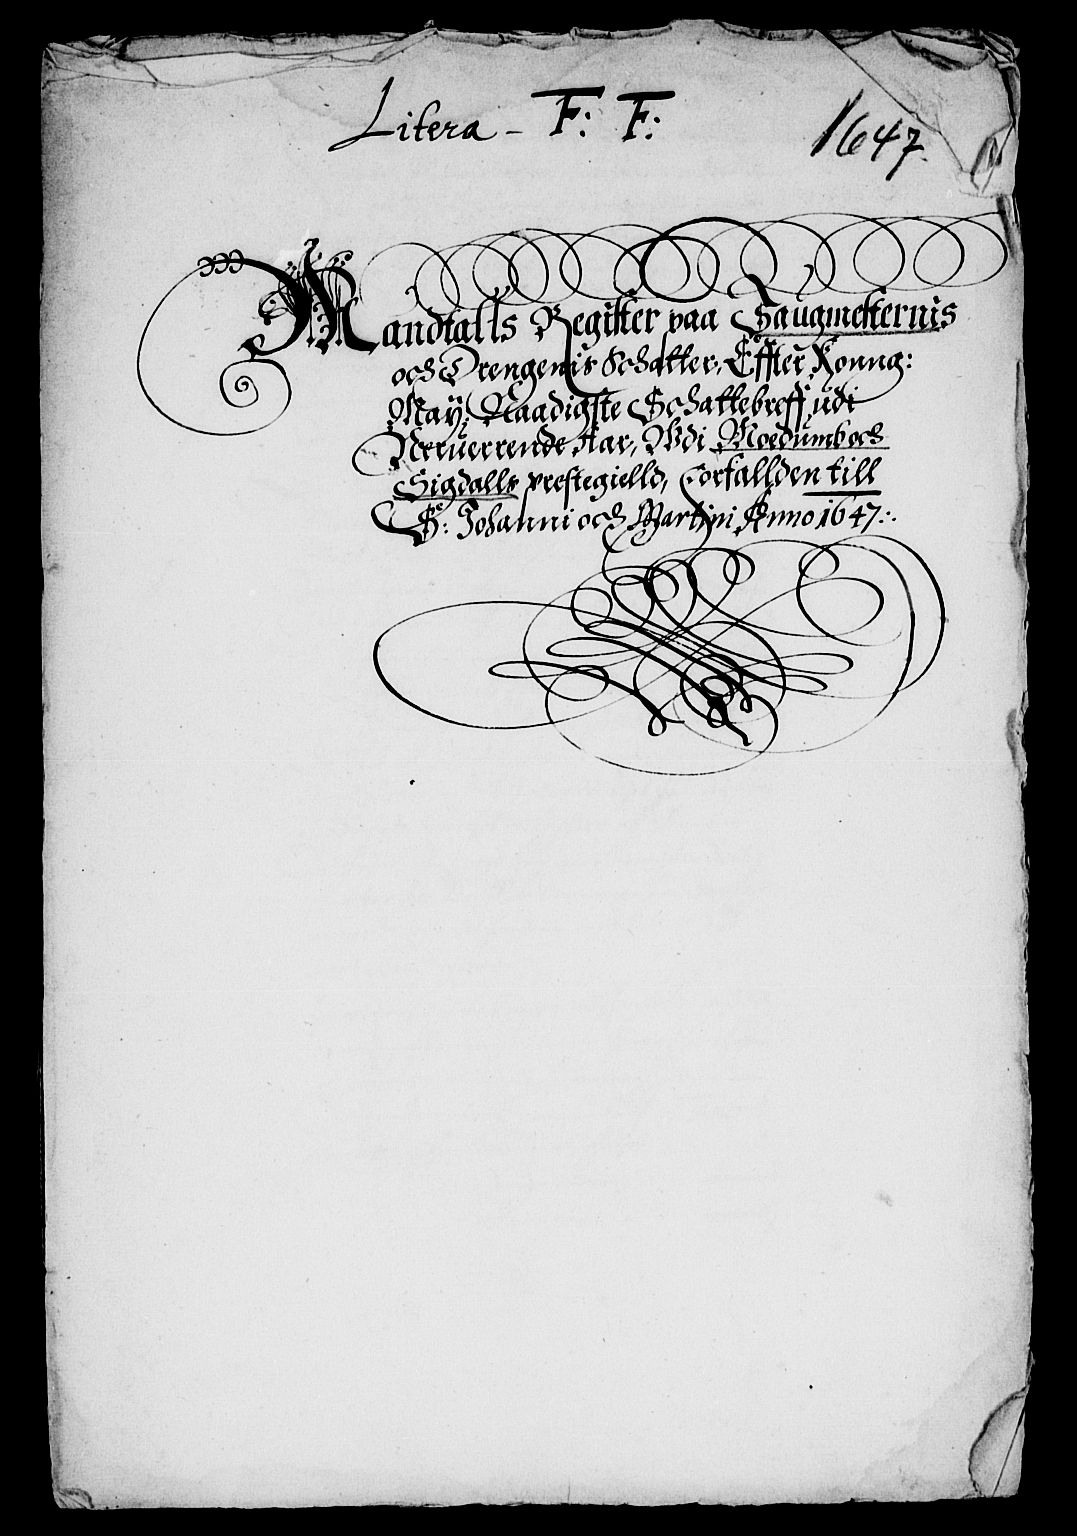 Litera - F: F:
1647.
Mandtalls Register paa Saugmesternis
och Drengenis Schatter, Effter Konng:
May: Naadigste Schattebreff udi
Neruerrende Aar, Wdi Modumb och
Sigdalls prestegielld, Forfallden till
St: Johanni och Martini Anno 1647:.